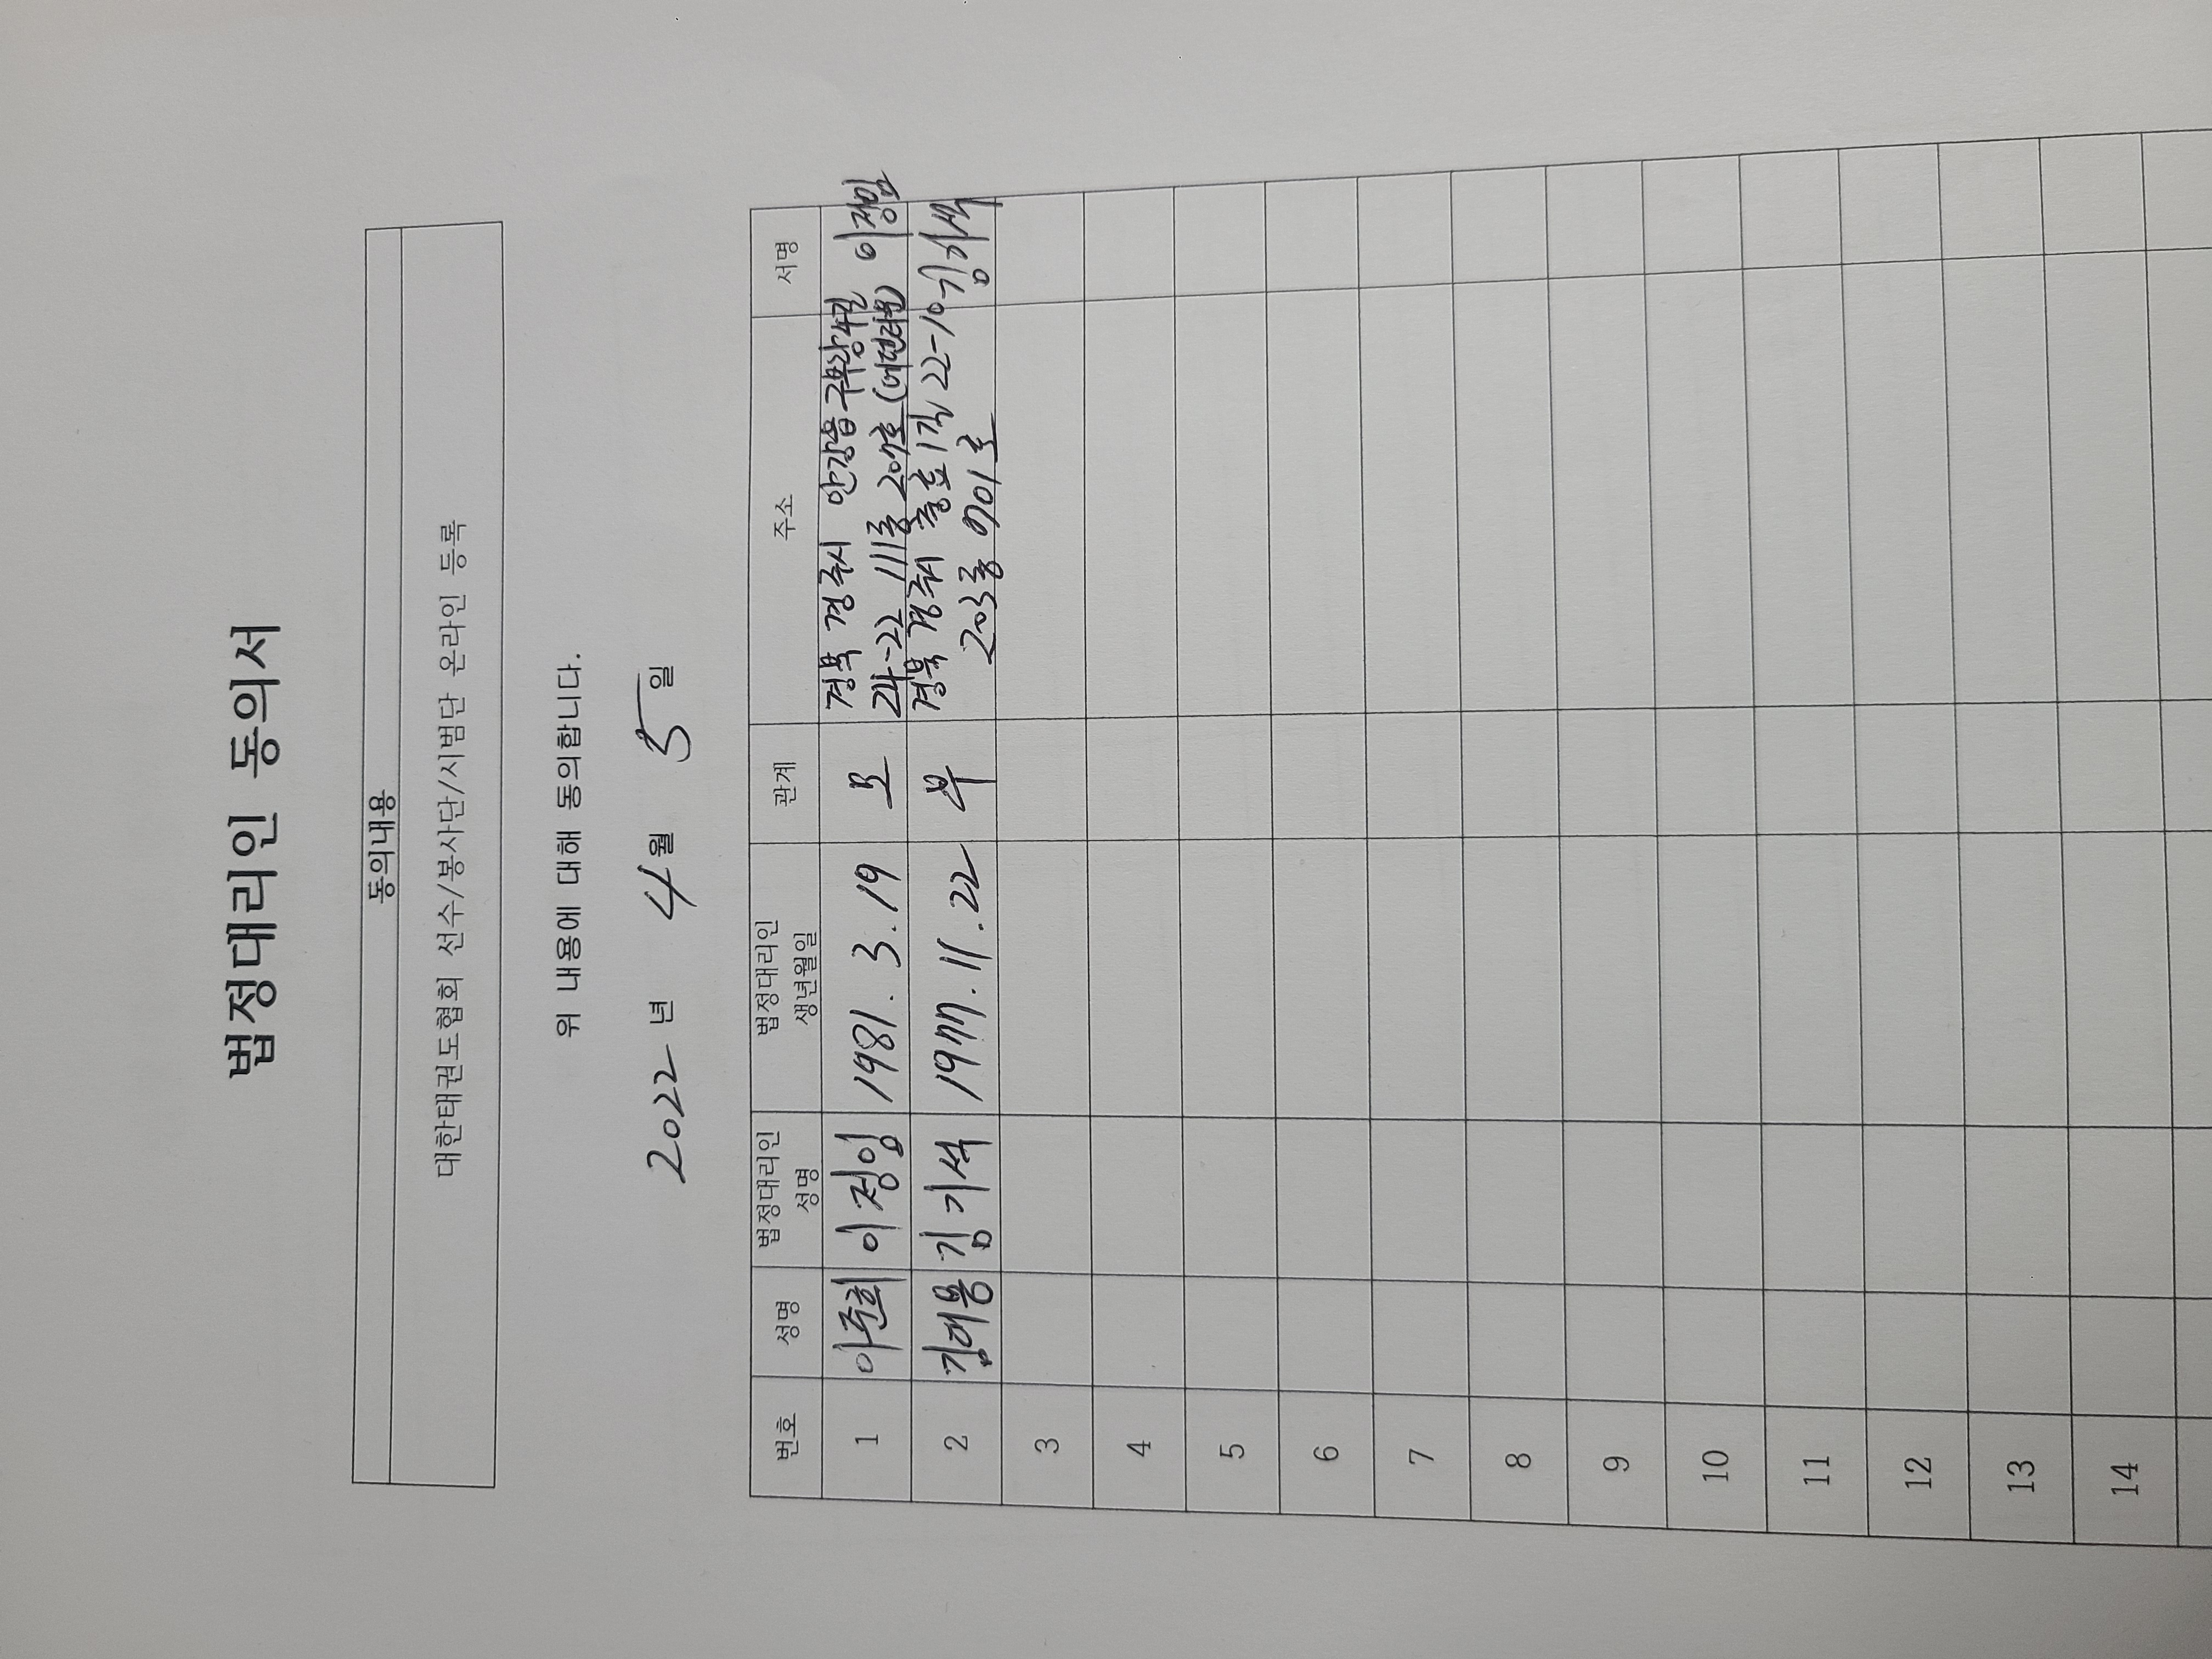 법정대리인 동의서
동의내용
대한태권도협회 선수/봉사단/시범단 온라인 등록
위 내용에 대해 동의합니다.
2022 년 4 월 5 일
번호 성명 법정대리인 성명 법정대리인 생년월일 관계 주소 서명
1 이준희 이정임 1981. 3. 19 모 경북 경주시 안강읍 구부랑4길 이정임
24-22 111동 207호 (에덴타운)
2 김태용 김기석 1977. 11. 22 부 경북 경주시 용담로 1길 22-10 김기석
203동 701호
3
4
5
6
7
8
9
10
11
12
13
14